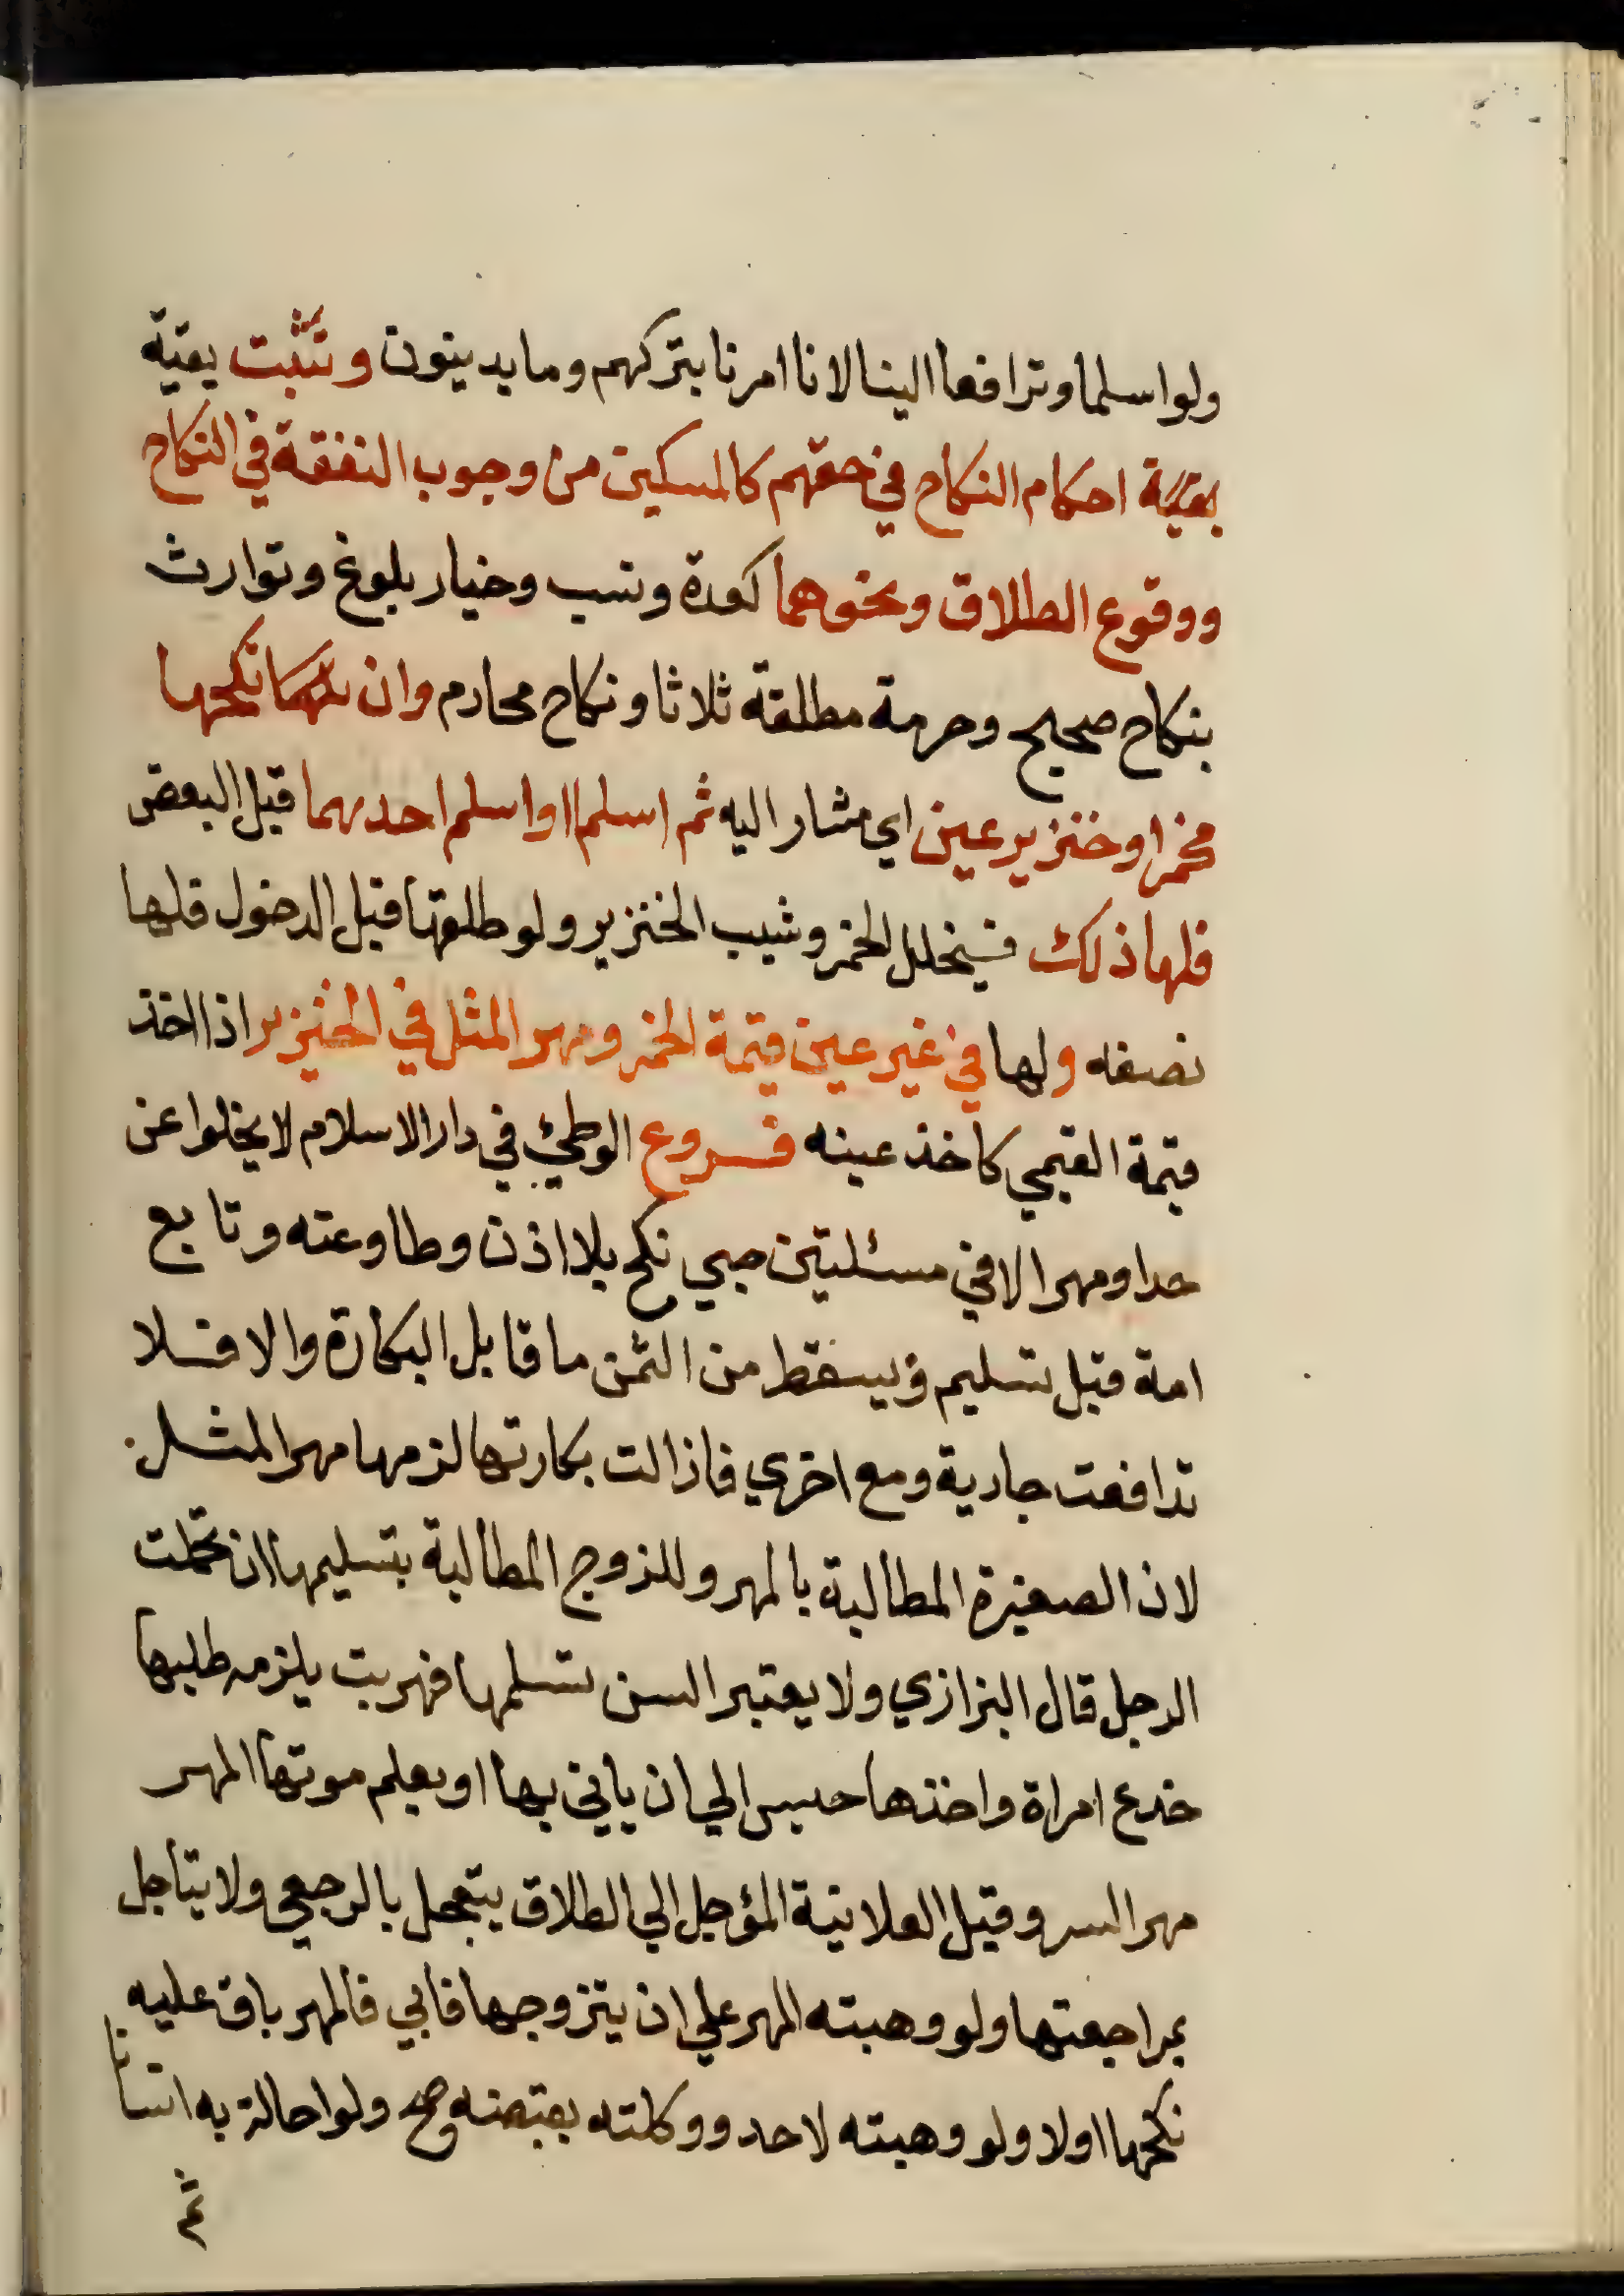 ولو اسلما وترافعا الينا لانا امرنا بتركهم وما يدينون وتثبت يقية
بقية احكام النكاح في حقهم كالمسكين من وجوب النفقة في النكاح
ووقوع الطلاق ونحوهما كعدة ونسب وخيار بلوغ وتوارث
بنكاح صحيح وحرمة مطلقة ثلاثا ونكاح محارم وان نكحها
بخمر او خنزير عين اي مشار اليه ثم اسلما او اسلم احدهما قبل البعض
فلها ذلك فيخلل الخمر وشيب الخنزير ولو طلقها قبل الدخول فلها
نصفه ولها في غير عين قيمة الخمر ومهر المثل في الخنزير اذ اخذ
قيمة القيمي كاخذ عينه فروع الوطئ في دار الاسلام لا يخلوا عن
حد او مهر الا في مسئلتين صبي نكح بلا اذن وطاوعته وتا بع
امة قبل تسليم ويسقط من الثمن ما قابل البكارة والا فلا
تدافعت جارية ومع اخري فازالت بكارتها لزمها مهر المثل
لان الصغيرة المطالبة بالمهر وللزوج المطالبة بتسليمها ان تحملت
الرجل قال البزازي ولا يعتبر السن تسلمها فهربت يلزمه طلبها
خدع امراة واخذها حبس الي ان ياتي بها او يعلم موتها المهر
مهر السر وقيل العلانية المؤجل الي الطلاق يتعجل بالرجعي ولا يتاجل
بمراجعتها ولو وهبته المهر علي ان يتزوجها فابي فالمهر باق عليه
نكحها اولا ولو وهبته لاحد ووكلته بقبضه صح ولو احالة به انسانا
ثم